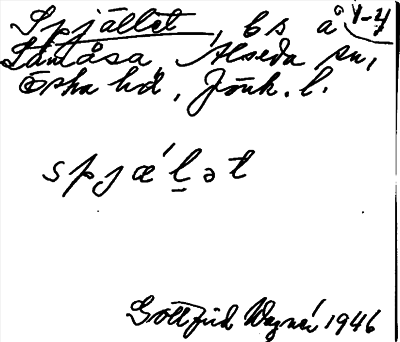 Spjället, bs å V-y
Lunnåsa, Alseda sn,
Östra hd, Jönk. l.
spjæ´l̠ət
Gottfrid Wagnér 1946